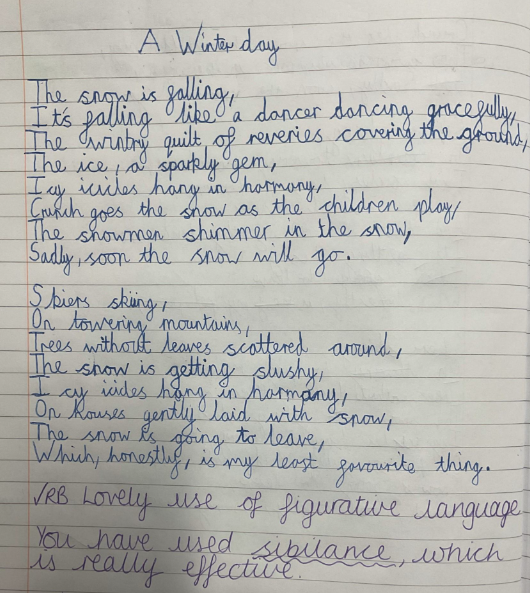 A Winter day
The snow is falling,
It's falling like a dancer dancing gracefully,
The wintry quilt of reveries covering the ground,
The ice, a sparkly gem,
Icy icicles hang in harmony,
Crunch goes the snow as the children play,
The snowmen shimmer in the snow,
Sadly, soon the snow will go.
Skiers skiing,
On towering mountains,
Trees without leaves scattered around,
The snow is getting slushy,
Icy icicles hang in harmony,
On houses gently laid with snow,
The snow is going to leave,
Which, honestly, is my least favourite thing.
√RB Lovely use of figurative language
You have used sibilance, which
is really effective.